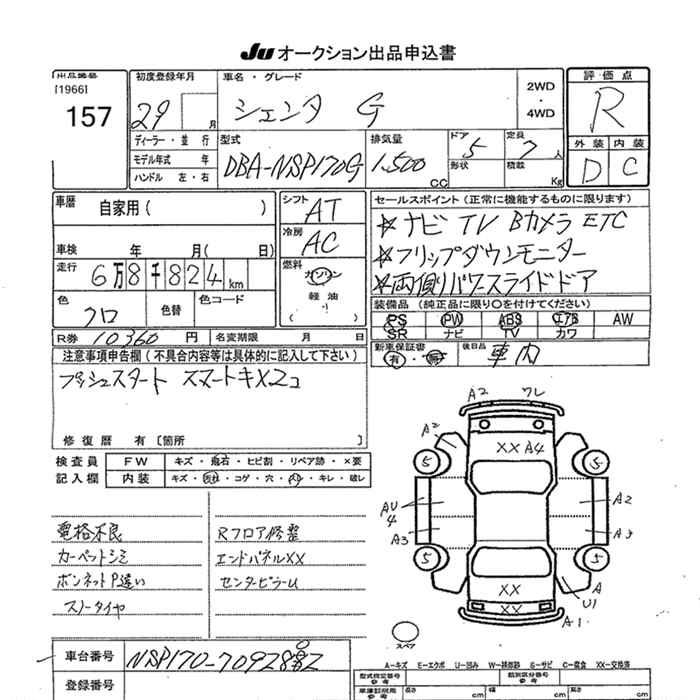 Ju オークション出品申込書
出品番号
[1966]
157
初度登録年月
29 月
車名・グレード
シエンタ G
2WD
・
4WD
評価点
R
外装 内装
D C
ディーラー・並行
モデル年式 年
ハンドル 左・右
型式
DBA-NSP170G
排気量
1,500
CC
ドア
5
形状
定員
7人
積載
Kg
車歴
自家用( )
車検 年 月( 日)
走行 6万8千824km
色
クロ
色替
色コード
シフト
AT
冷房
AC
燃料
ガソリン
軽油
( )
セールスポイント(正常に機能するものに限ります)
☆ナビ TV Bカメラ ETC
☆フリップダウンモニター
☆両側パワースライドドア
装備品(純正品に限り○を付けてください)
PS PW ABS エアB AW
SR ナビ TV カワ
R券 10360円
名変期限 月 日
新車保証書
有・無
後日品
車内
注意事項申告欄(不具合内容等は具体的に記入して下さい)
プッシュスタート スマートキX2コ
修復歴 有〔箇所 〕
検査員
記入欄
FW キズ・飛石・ヒビ割・リペア跡・×要
内装 キズ・コゲ・穴・キレ・破レ
電格不良
カーペットシミ
ボンネットP違い
スノータイヤ
Rフロア修整
エンドパネルXX
センターピラーU
A2 ワレ
A2
XX A4
5 5
AU
4
A2
A3 A3
5 5
XX
XX
A
U1
A1
スペア
A-キズ E-エクボ U-凹み W-補修跡 S-サビ C-腐食 XX-交換済
車台番号
NSP170-709
登録番号
型式指定番号
参考
類別区分番号
参考
車庫証明用
参考
長さ cm 幅 cm 高さ cm